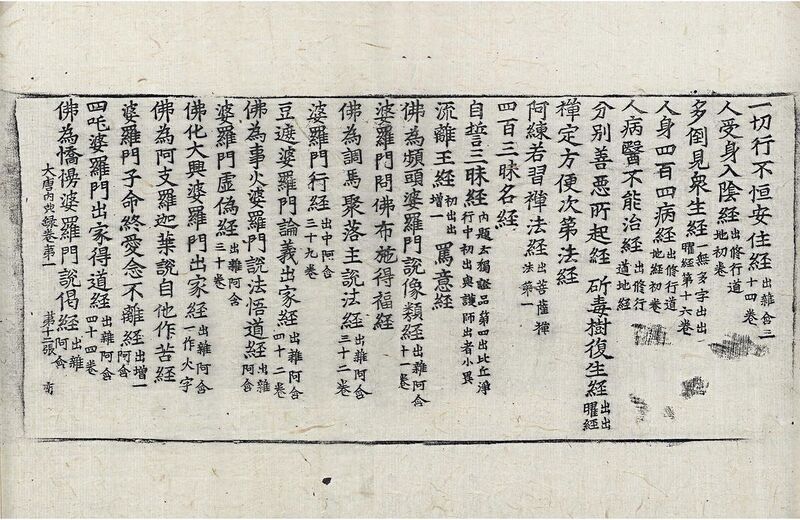 一切行不恒安住經出雜含三十四卷
人受身入陰經出修行道地初卷
多倒見衆生經一無多字出出曜經第十六卷
人身四百四病經出修行道地經初卷
人病醫不能治經出修行道地經
分別善惡所起經 斫毒樹復生經出出曜經
禪定方便次第法經
阿練若習禪法經出菩薩禪法第一
四百三昧名經
自誓三昧經內題云獨證品第四出比丘淨行中初出與護師出者小異
流離王經初出出增一 罵意經
佛為頻頭婆羅門說像類經出雜阿含十一卷
婆羅門問佛布施得福經
佛為調馬聚落主說法經出雜阿含三十二卷
婆羅門行經出中阿含三十九卷
豆遮婆羅門論義出家經出雜阿含四十二卷
佛為事火婆羅門說法悟道經出雜阿含
婆羅門虛偽經出雜阿含三十卷
佛化大興婆羅門出家經出雜阿含一作火字
佛為阿支羅迦葉說自他作苦經
婆羅門子命終愛念不離經出增一阿含
四吒婆羅門出家得道經出雜阿含四十四卷
佛為憍慢婆羅門說偈經出雜阿含
大唐內典錄卷第一 第十二張